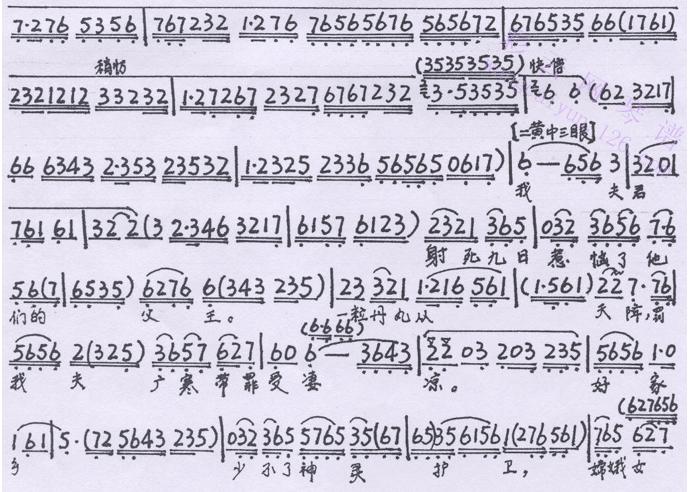 7·276 5356 | 767232 1·276 76565676 565672 | 676535 66(1761)
稍快 (35353535) 快一倍
2321212 33232 | 1·27267 2327 6767232 3·53535 | 6 6 (62 3217)
[二黄中三眼]
66 6343 2·353 23532 | 1·2325 2336 56565 0617) | 6 — 656 3 | 3201
我 夫 君
761 61 | 32 2(3 2·346 3217 | 6157 6123) 2321 365 | 032 3656 7·6
射 死 九 日 惹 恼 了 他
56(7 | 6535) 6276 6(343 235) | 23 321 1·216 561 | (1·561) 227·76 |
们的 父 王。 一粒丹丸从 天 降,罚
(6·6 66)
5656 2(325) 3657 627 | 60 6 — 3643 | 22 03 203 235 | 5656 1·0
我 夫 广 寒 带 罪 受 凄 凉。 好 家
(627656
161 | 5·(72 5643 235) | 032 365 5765 35(67 | 65)35 6156 1(276 561) | 765 627
乡 少 不了 神 灵 护 卫, 嫦娥女